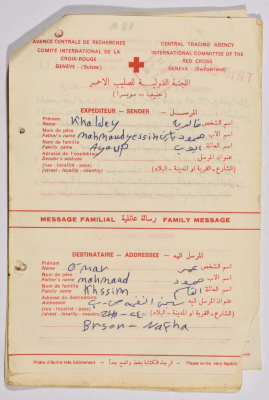 A 21
AGENCE CENTRALE DE RECHERCHES
COMITÉ INTERNATIONAL DE LA
CROIX-ROUGE
GENÈVE - (Suisse)
CENTRAL TRACING AGENCY
INTERNATIONAL COMMITTEE OF THE
RED CROSS
GENEVA - (Switzerland)
اللجنة الدولية للصليب الاحمر
(جنيف - سويسرا)
EXPÉDITEUR - SENDER المرسل
Prénom
First name Khaldey اسم الشخص
Nom du père
Father's name mahmoudyessin اسم الأب
Nom de famille
Family name Ayoup ايوب اسم العائلة
Adresse de l'expéditeur
Sender's address عنوان المرسل
(rue - localité - pays)
(street - locality - country) (الشارع - القرية او المدينة - البلاد)
MESSAGE FAMILIAL رسالة عائلية FAMILY MESSAGE
DESTINATAIRE - ADDRESSEE المرسل اليه
Prénom
First name Omar عمر اسم الشخص
Nom du père
Father's name mahmoud محمود اسم الأب
Nom de famille
Family name Khssim اسم العائلة
Adresse du destinataire
Addressee عنوان المرسل اليه
(rue - localité - pays)
(street - locality - country) (الشارع - القرية او المدينة - البلاد)
Brson - Nafha
Prière d'écrire très lisiblement - الرجاء الكتابة بخط واضح جدا - Please write very legibly